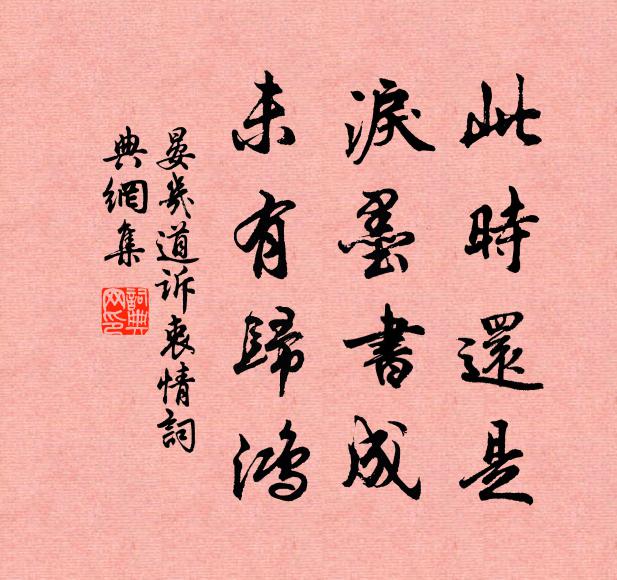 此時還是
淚墨書成
未有歸鴻
晏幾道訴衷情詞
典網集
詞典網印